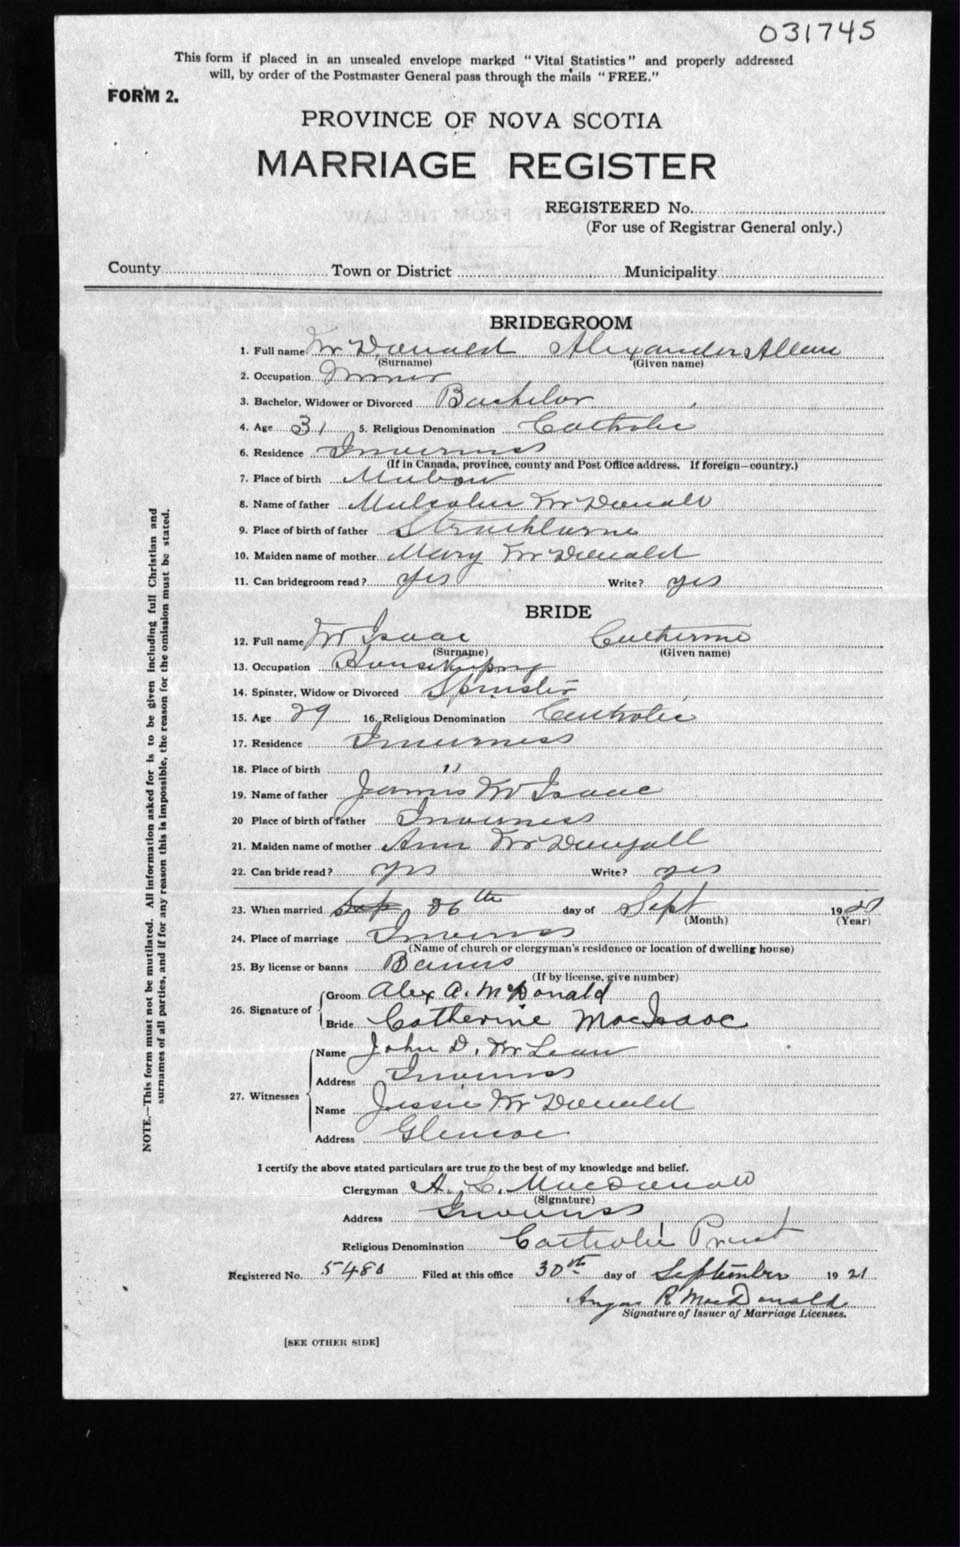 031745
This form if placed in an unsealed envelope marked "Vital Statistics" and properly addressed
will, by order of the Postmaster General pass through the mails "FREE."
FORM 2.
PROVINCE OF NOVA SCOTIA
MARRIAGE REGISTER
REGISTERED No.
(For use of Registrar General only.)
County Town or District Municipality
BRIDEGROOM
1. Full name McDonald Alexander Allan
(Surname) (Given name)
2. Occupation Miner
3. Bachelor, Widower or Divorced Bachelor
4. Age 31 5. Religious Denomination Catholic
6. Residence Inverness
(If in Canada, province, county and Post Office address. If foreign—country.)
7. Place of birth Mabou
8. Name of father Malcolm McDonald
9. Place of birth of father Strathlorne
10. Maiden name of mother Mary McDonald
11. Can bridegroom read? yes Write? yes
BRIDE
12. Full name McIsaac Catherine
(Surname) (Given name)
13. Occupation Housekeeping
14. Spinster, Widow or Divorced Spinster
15. Age 29 16. Religious Denomination Catholic
17. Residence Inverness
18. Place of birth "
19. Name of father James McIsaac
20 Place of birth of father Inverness
21. Maiden name of mother Ann McDougall
22. Can bride read? yes Write? yes
23. When married 26th day of Sept 19
(Month) (Year)
24. Place of marriage Inverness
(Name of church or clergyman's residence or location of dwelling house)
25. By license or banns Banns
(If by license, give number)
26. Signature of Groom Alex A. McDonald
Bride Catherine MacIsaac
27. Witnesses Name John D. McLean
Address Inverness
Name Jessie McDonald
Address Glencoe
I certify the above stated particulars are true to the best of my knowledge and belief.
Clergyman A. L. MacDonald
(Signature)
Address Inverness
Religious Denomination Catholic Priest
Registered No. 5480 Filed at this office 30th day of September 1921
Angus R. MacDonald
Signature of Issuer of Marriage Licenses.
[SEE OTHER SIDE]
NOTE.—This form must not be mutilated. All information asked for is to be given including full Christian and
surnames of all parties, and if for any reason this is impossible, the reason for the omission must be stated.